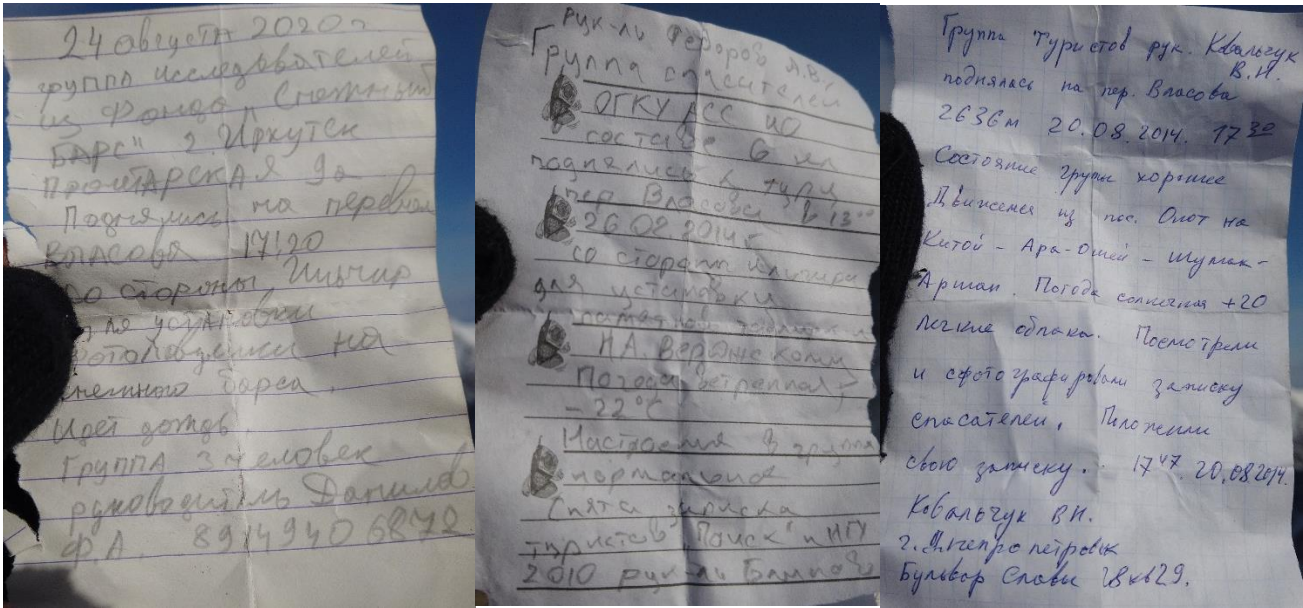 24 августа 2020г
группа исследователей
из Фонда "Снежный
БАРС" г. Иркутск
ПРОЛЕТАРСКАЯ 9а
Поднялись на перевал
Власова 17:20
со стороны Ильчир
для установки
фотоловушки на
снежного барса.
Идёт дождь.
Группа 3 человек
руководитель Данилов
Ф.А. 89149406872
рук-ль Федоров А.В.
Группа спасителей
ОГКУ АСС ИО
составе 6 чл
поднялись в
пер Власова в 13⁰⁰
26 02 2014 г
со стороны Ильчира
для установки
памятной таблички
Н.А. 
Погода ветренная,
– 22°С
Настроения в группе
нормальное
Снята записка
туристов "Поиск" ИГУ
2010 рук-ль
Группа Туристов рук. Ковальчук
В.Н.
поднялась на пер. Власова
2636м 20.08.2014. 17³⁰
Состояние групы хорошее
Движемся из пос. Орот на
Китой – Ара-Ошей – Шумак –
Аршан. Погода солнечная +20
легкие облака. Посмотрели
и сфотографировали записку
спасателей. Положили
свою записку. 17⁴⁷ 20.08.2014.
Ковальчук В.Н.
г. Днепропетровск
Бульвар Славы 28 кв29.